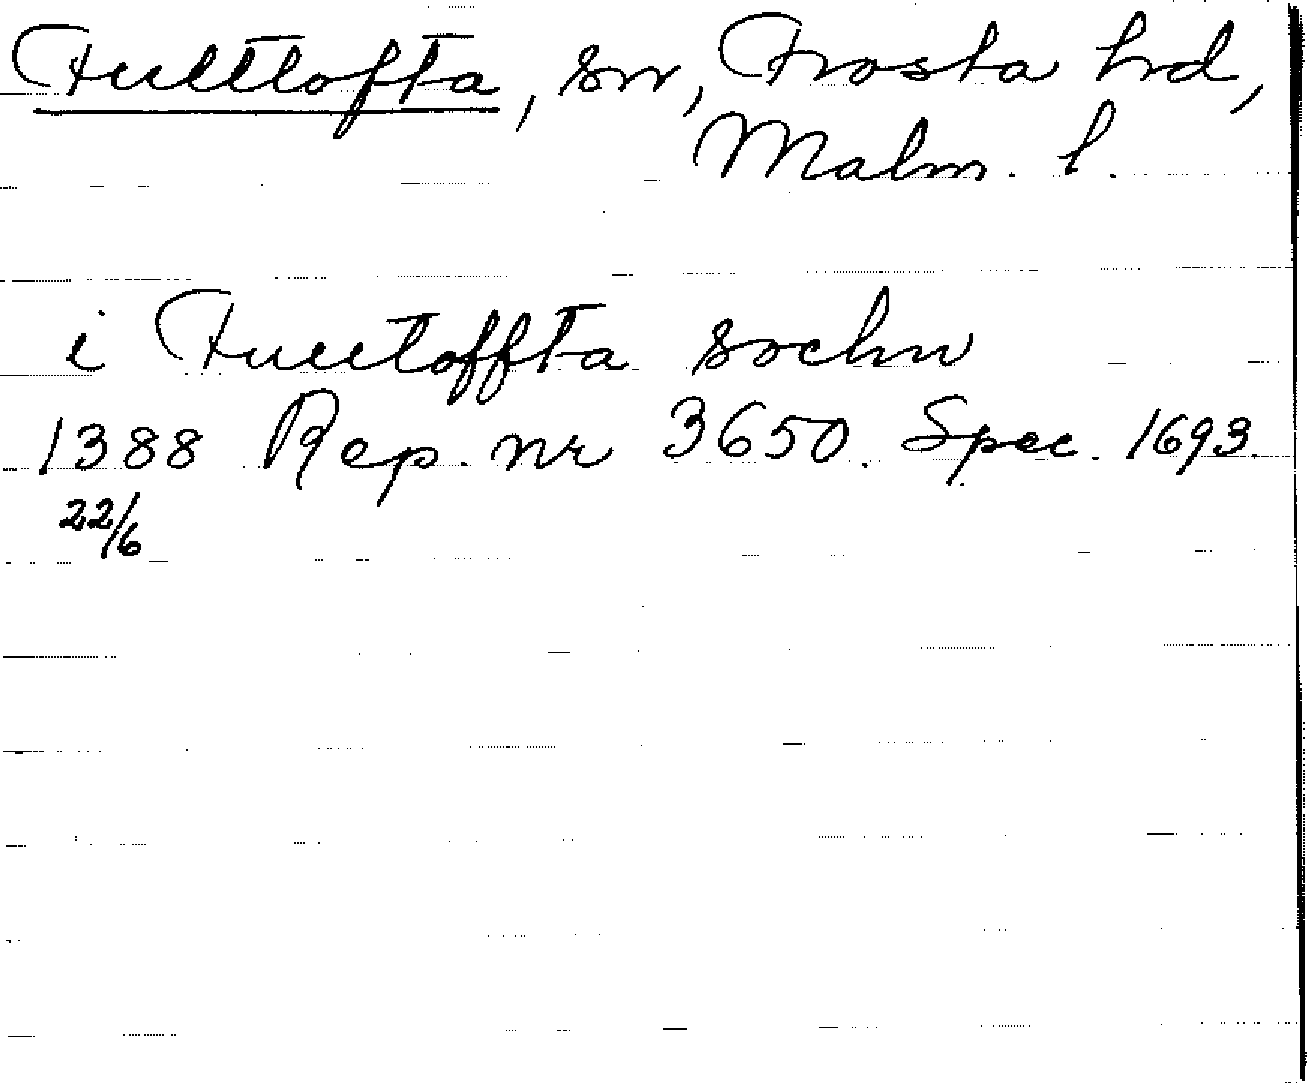 Fulltofta, sn, Frosta hd,
Malm. l.
i Fulltoffta sochn
1388 Rep. nr 3650. Spec. 1693.
22/6